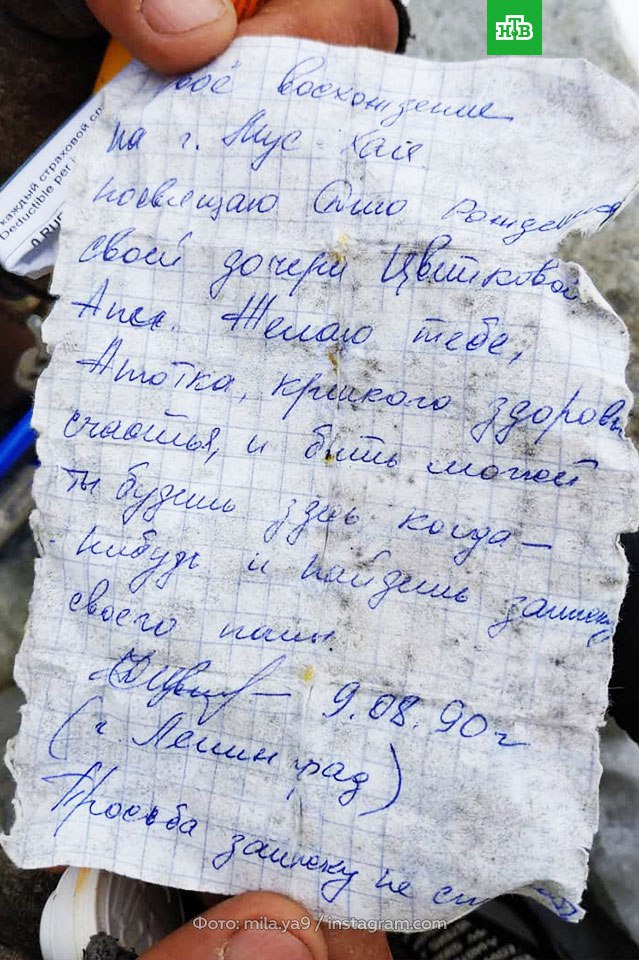 НТВ
каждый страховой сл
Deductible per
0 RUB
Своё восхождение
на г. Мус-Хая
посвящаю Дню Рождения
своей дочери Цветковой
Ане. Желаю тебе,
Анютка, крепкого здоровья
счастья, и быть может
ты будешь здесь когда-
нибудь и найдешь записку
своего папы.
9.08.90г
(г. Ленинград)
Просьба записку не
Фото: mila.ya9 / instagram.com